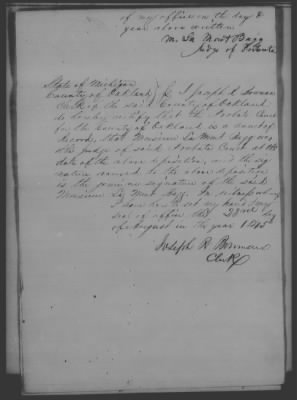 of my office on the day &
year above written
M. La Mont Bagg
Judge of Probate
State of Michigan
County of Oakland } I Joseph R Bowman
Clerk of the said County of Oakland
do hereby certify that the Probate Court
for the County of Oakland is a court of
Record, that Monsieur La Mont Bagg was
the judge of said Probate Court at the
date of the above deposition, and the sig
nature annexed to the above deposition
is the genuine signature of the said
Monsieur La Mont Bagg. In testimony
I have hereto set my hand & my
seal of office this day
of August in the year 1845
Joseph R Bowman
Clerk